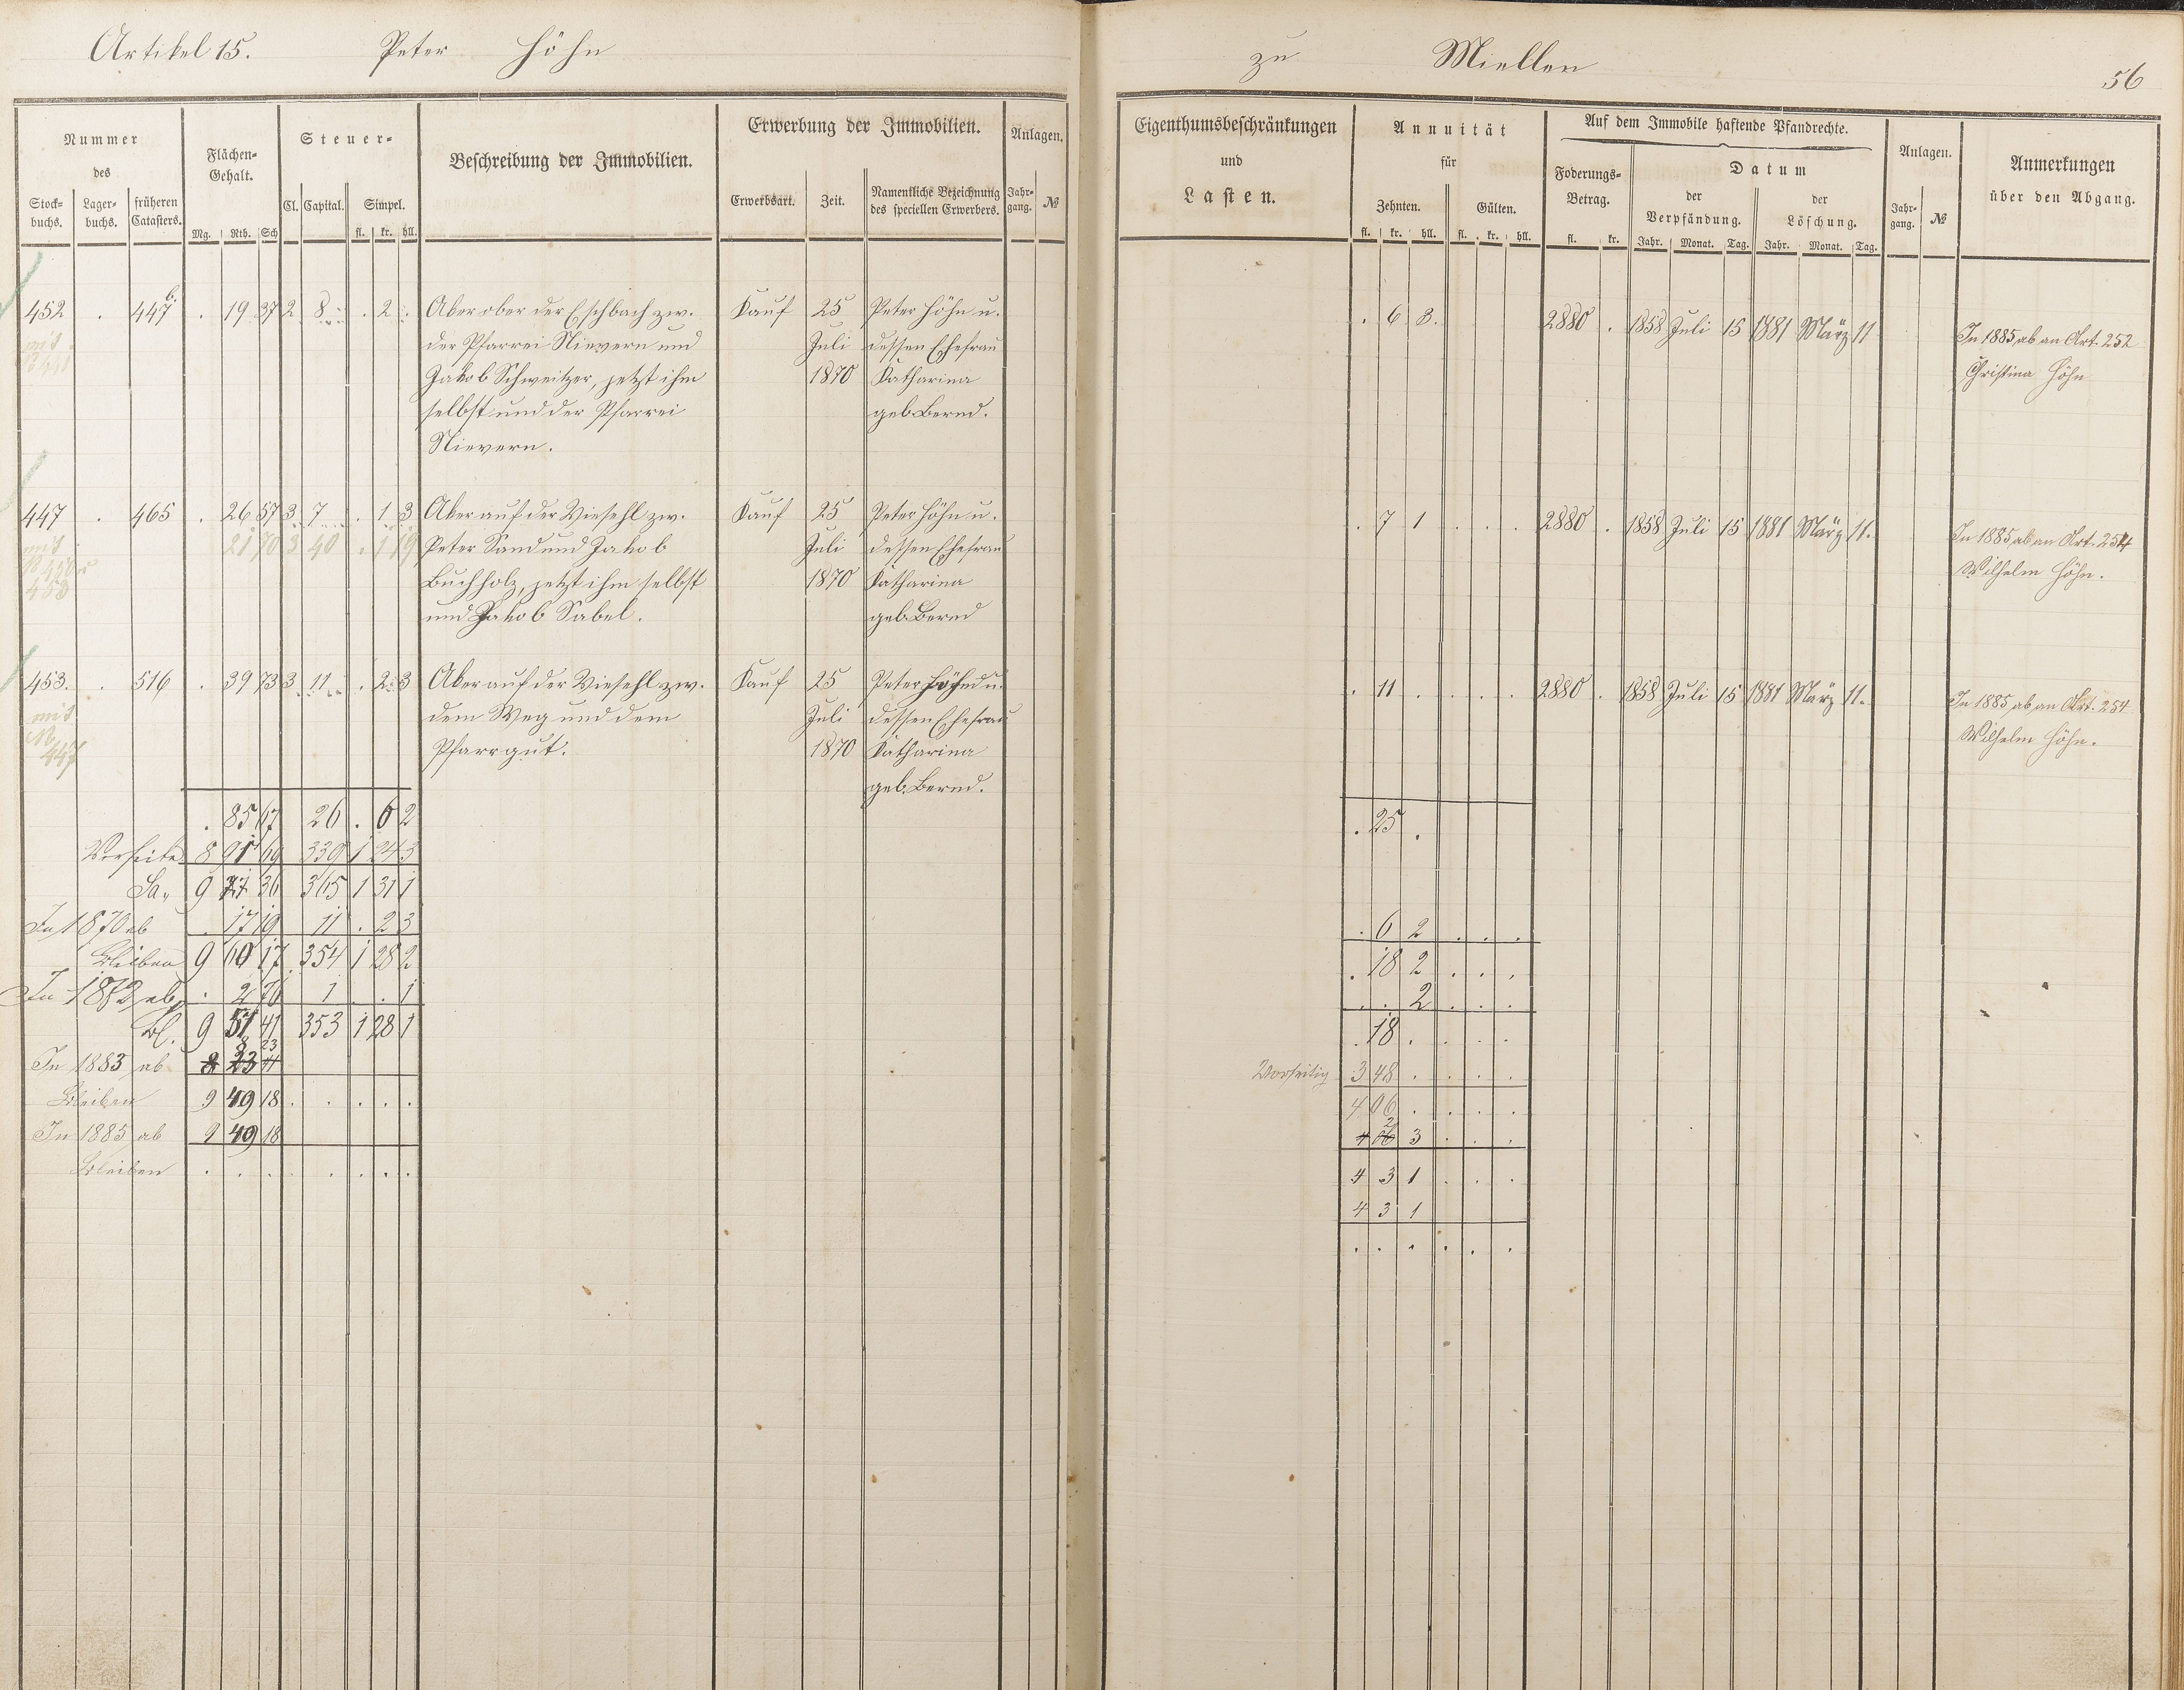 Artikel 15. Peter Höhn zu Miellen
56
Nummer des
Stock-buchs. Lager-buchs. früheren Catasters.
Flächen-Gehalt.
Mg. Rth. Sch
Steuer-
Cl. Capital. Simpel.
fl. kr. hll.
Beschreibung der Immobilien.
Erwerbung der Immobilien.
Erwerbsart. Zeit. Namentliche Bezeichnung des speciellen Erwerbers.
Anlagen.
Jahr-gang. №
Eigenthumsbeschränkungen
und
Lasten.
Annuität
für
Zehnten. Gülten.
fl. kr. hll. fl. kr. hll.
Auf dem Immobile haftende Pfandrechte.
Foderungs-Betrag.
fl. kr.
Datum
der Verpfändung. der Löschung.
Jahr. Monat. Tag. Jahr. Monat. Tag.
Anlagen.
Jahr-gang. №
Anmerkungen
über den Abgang.
452 . 447 b. . 19 37 2 8 . 2 Aker ober der Eschbach zw. Kauf 25 Peter Höhn u. . 6 3. 2880 . 1858 Juli 15 1881 März 11 In 1885 ab an Art. 252
mit der Pfarrei Nievern und Juli dessen Ehefrau Christina Höhn
Jakob Schweitzer, jetzt ihm 1870 Katharina
selbst und der Pfarrei geb. Bernd.
Nievern.
447 . 465 . 26 57 3 7 . 1 3 Aker auf der Viesehl zw. Kauf 25 Peter Höhn u. . 7 1 . . . 2880 . 1858 Juli 15 1881 März 11. In 1885 ab an Art. 254
mit 21 70 3 40 . 1 19 Peter Sand und Jakob Juli dessen Ehefrau Wilhelm Höhn.
Buchholz, jetzt ihm selbst 1870 Katharina
und Jakob Sabel. geb. Bernd
453. . 516 . 39 73 3 11 . 2 3 Aker auf der Viesehl zw. Kauf 25 Peter Höhn u. . 11 . . . . 2880 . 1858 Juli 15 1881 März 11. In 1885 ab an Art. 254
mit dem Weg und dem Juli dessen Ehefrau Wilhelm Höhn.
№ 447 Pfarrgut. 1870 Katharina
geb. Bernd.
. 85 67 26 . 6 2 . 25 .
Vorseite 8 91 69 339 1 24 3
Sa. 9 77 36 365 1 31 1
In 1870 ab . 17 19 11 . 2 3 . 6 2 . . .
Bleiben 9 60 17 354 1 28 2 . 18 2 . . .
In 1872 ab . 2 76 1 . . 1 . . 2 . . .
Bl. 9 57 41 353 1 28 1 . 18 . . . .
In 1883 ab 8 23 Vorseitig 3 48 . . . .
Bleiben 9 49 18 . . . . . 4 06 . . . .
In 1885 ab 9 49 18 2 3 . . .
Bleiben . . . . . . . 4 3 1 . . .
4 3 1
. . . . . .